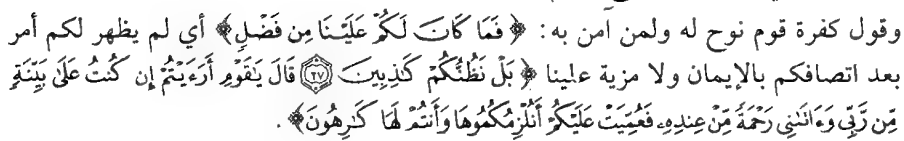 وقول كفرة قوم نوح له ولمن آمن به: ﴿فَمَا كَانَ لَكُمْ عَلَيْنَا مِن فَضْلٍ﴾ أي لم يظهر لكم أمر
بعد اتصافكم بالإيمان ولا مزية علينا ﴿بَلْ نَظُنُّكُمْ كَـٰذِبِينَ ۝٢٧ قَالَ يَـٰقَوْمِ أَرَءَيْتُمْ إِن كُنتُ عَلَىٰ بَيِّنَةٍ
مِّن رَّبِّى وَءَاتَىٰنِى رَحْمَةً مِّنْ عِندِهِۦ فَعُمِّيَتْ عَلَيْكُمْ أَنُلْزِمُكُمُوهَا وَأَنتُمْ لَهَا كَـٰرِهُونَ﴾.